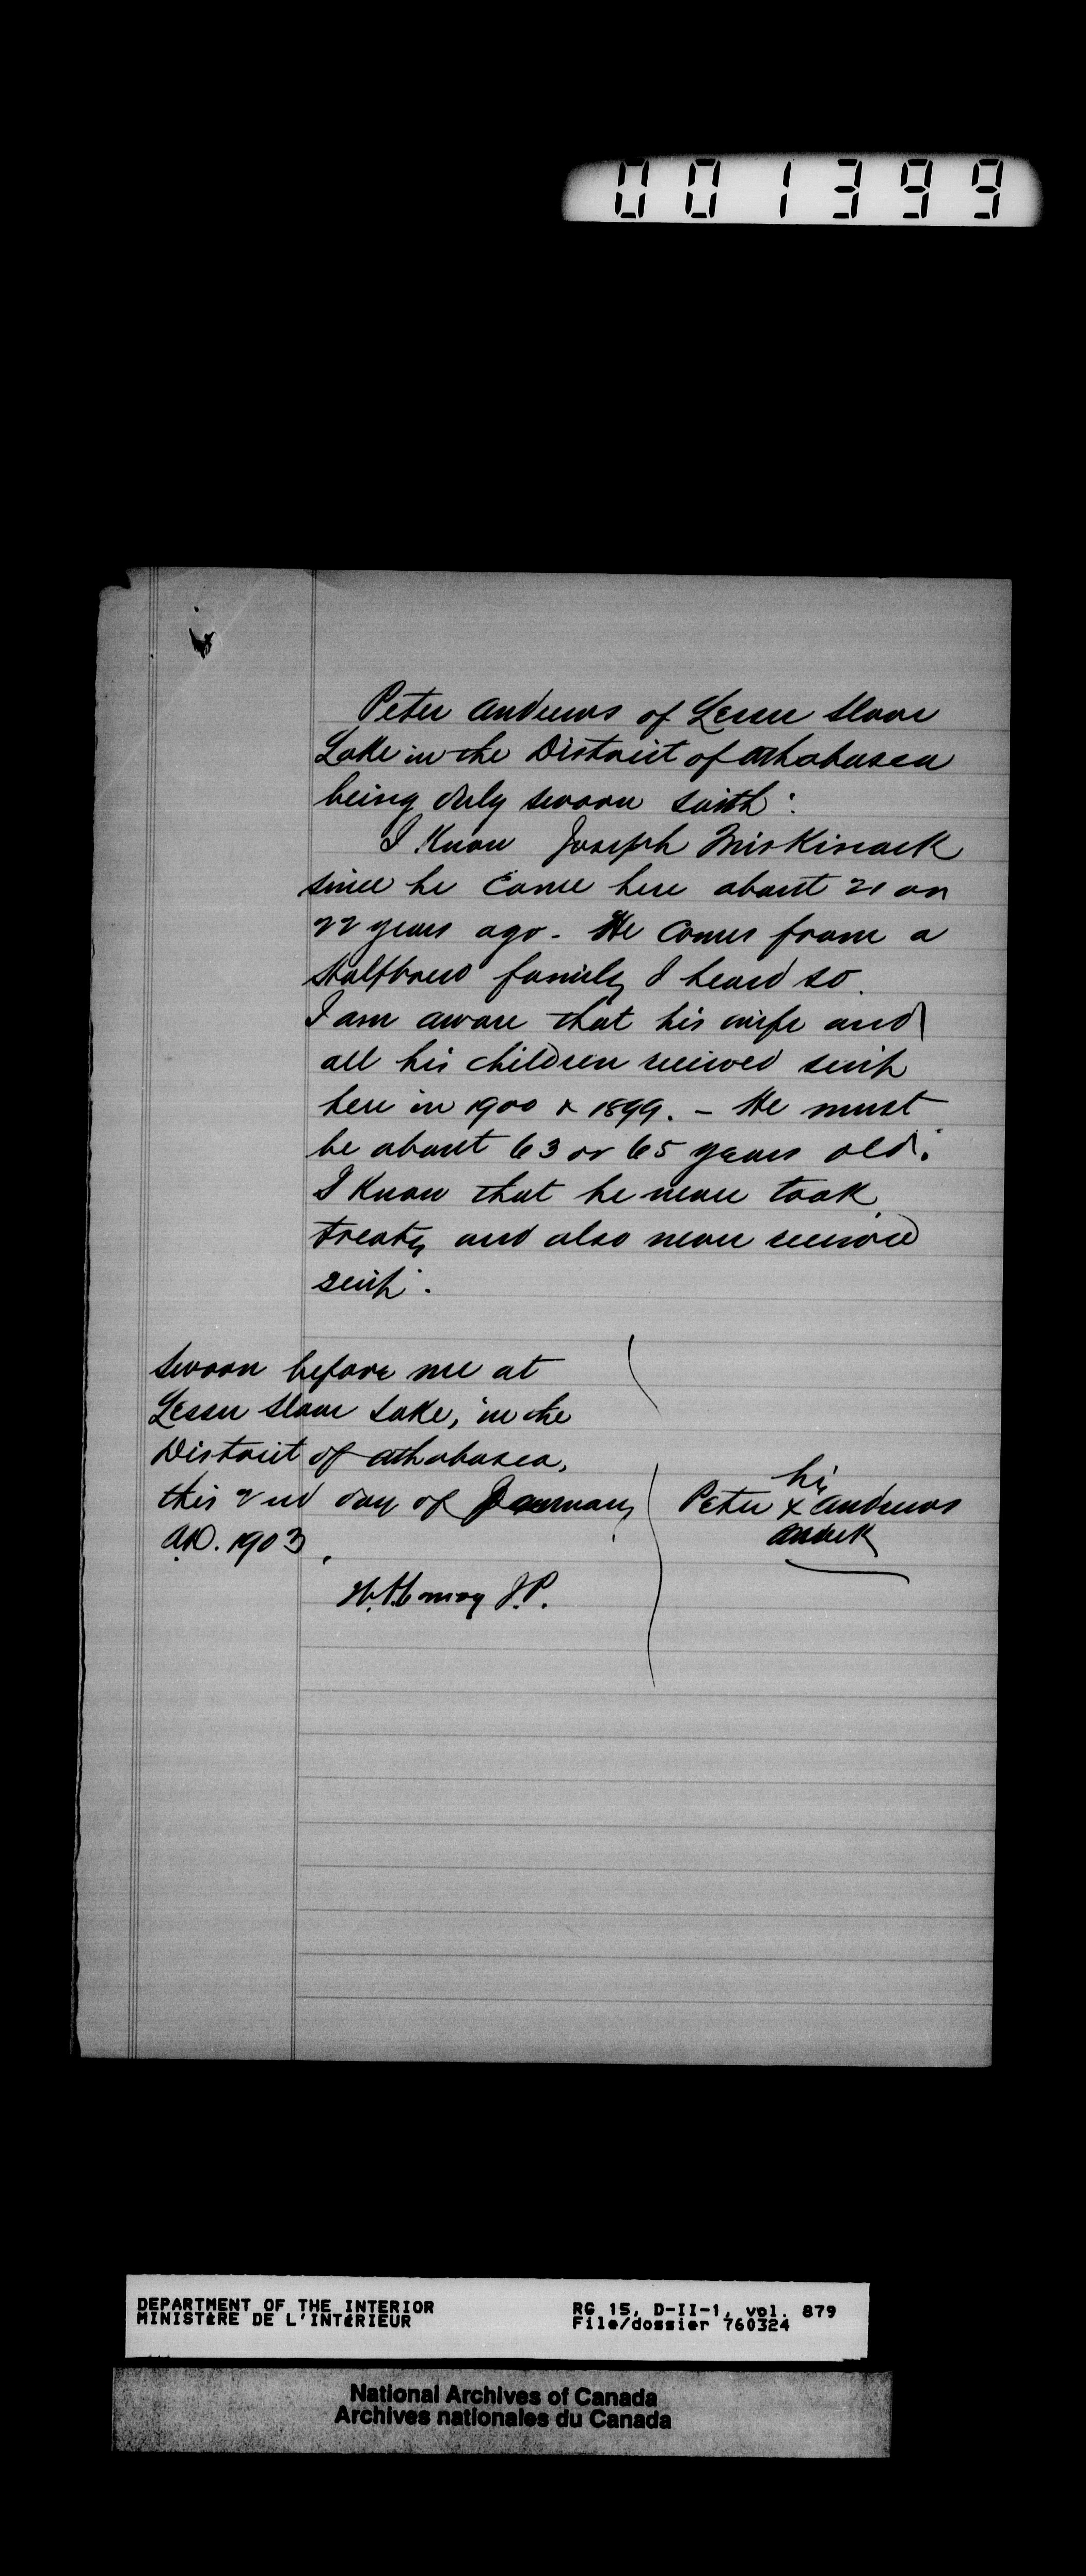 001399
Peter Andrews of Lesser Slave
Lake in the District of Athabasca
being duly sworn saith:
I know Joseph
since he came here about 21 or
22 years ago - He comes from a
Halfbreed family I heard so.
I am aware that his wife and
all his children received scrip
here in 1900 & 1899. - He must
be about 63 or 65 years old.
I know that he never took
treaty and also never received
scrip.
Sworn before me at
Lesser Slave Lake, in the
District of Athabasca,
this 2nd day of January
A.D. 1903.
his
Peter x Andrews
mark
J.P.
DEPARTMENT OF THE INTERIOR
MINISTÈRE DE L'INTÉRIEUR
RG 15, D-II-1, vol. 879
File/dossier 760324
National Archives of Canada
Archives nationales du Canada